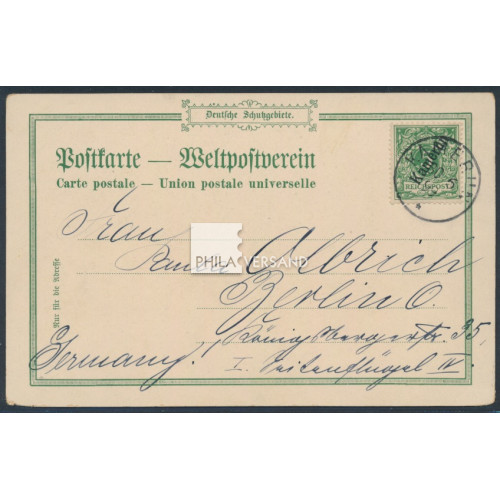 Deutsche Schutzgebiete.
Postkarte — Weltpostverein
Carte postale — Union postale universelle
Kamerun
REICHSPOST
Nur für die Adresse
Frau
PHILA VERSAND
Olbrich
Berlin O.
Königsbergerstr. 35,
Germany. I. Seitenflügel IV.